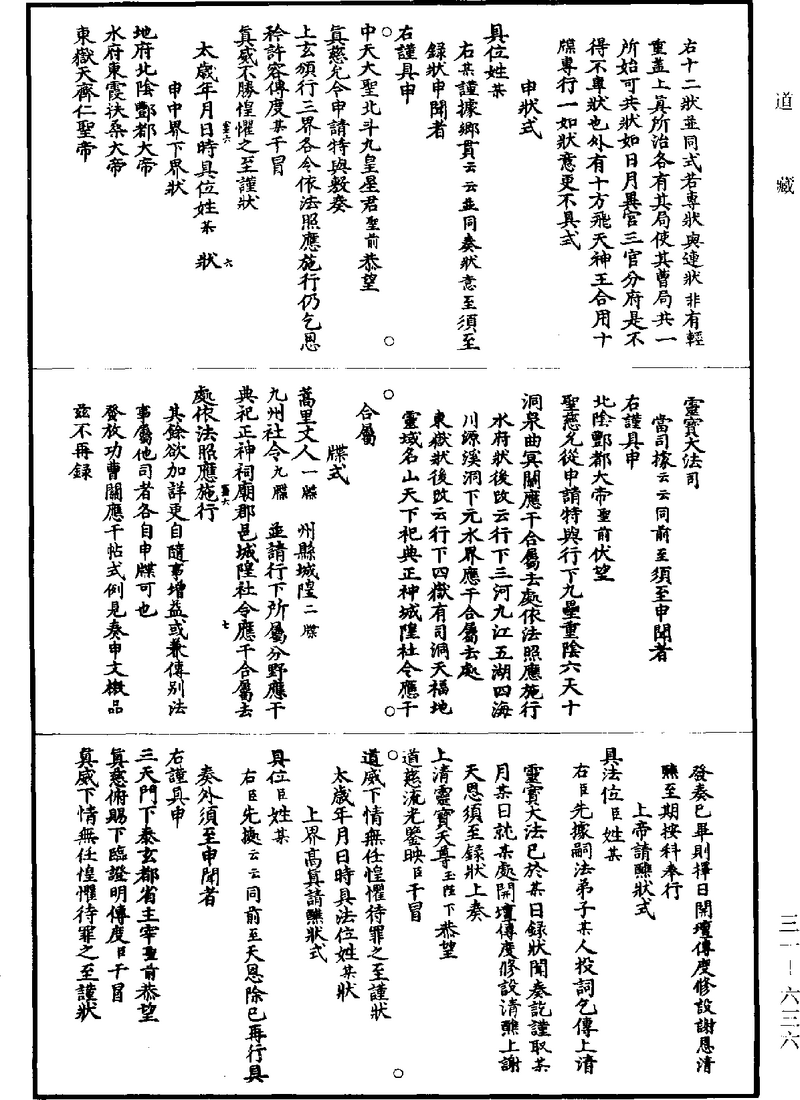 道藏
右十二狀並同式若專狀與連狀非有輕
重蓋上真所治各有其局使其曹局共一
所始可共狀如日月異宮三官分府是不
得不專狀也外有十方飛天神王合用十
牒專行一如狀意更不具式
申狀式
具位姓某
右某謹據鄉貫云云並同奏狀意至須至
錄狀申聞者
右謹具申
中天大聖北斗九皇星君聖前恭望
眞慈允令申請特與敷奏
上玄頒行三界各令依法照應施行仍乞恩
矜許容傳度某干冒
眞威不勝惶懼之至謹狀
太歲年月日時具位姓某 狀
申中界下界狀
地府北陰酆都大帝
水府東霞扶桑大帝
東嶽天齊仁聖帝
靈寶大法司
當司據云云同前至須至申聞者
右謹具申
北陰酆都大帝聖前伏望
聖慈允從申請特與行下九壘重陰六天十
洞泉曲冥關應干合屬去處依法照應施行
水府狀後改云行下三河九江五湖四海
川源溪洞下元水界應干合屬去處
東嶽狀後改云行下四嶽有司洞天福地
靈域名山天下祀典正神城隍社令應干
合屬
牒式
蒿里丈人一牒 州縣城隍二牒
九州社令九牒 並請行下所屬分野應干
典祀正神祠廟郡邑城隍社令應干合屬去
處依法照應施行
其餘欲加詳更自隨事增益或兼傳別法
事屬他司者各自申牒可也
發放功曹關應干帖式例見奏申文檄品
茲不再錄
發奏已畢則擇日開壇傳度修設謝恩清
醮至期按科奉行
上帝請醮狀式
具法位臣姓某
右臣先據嗣法弟子某人投詞乞傳上清
靈寶大法已於某日錄狀聞奏訖謹取某
月某日就某處開壇傳度修設清醮上謝
天恩須至錄狀上奏
上清靈寶天尊玉陛下恭望
道慈流光鑒映臣干冒
道威下情無任惶懼待罪之至謹狀
太歲年月日時具法位姓某狀
上界高眞請醮狀式
具位臣姓某
右臣先據云云同前至天恩除已再行具
奏外須至申聞者
右謹具申
三天門下泰玄都省主宰聖前恭望
眞慈俯賜下臨證明傳度臣干冒
眞威下情無任惶懼待罪之至謹狀
三一—六三六